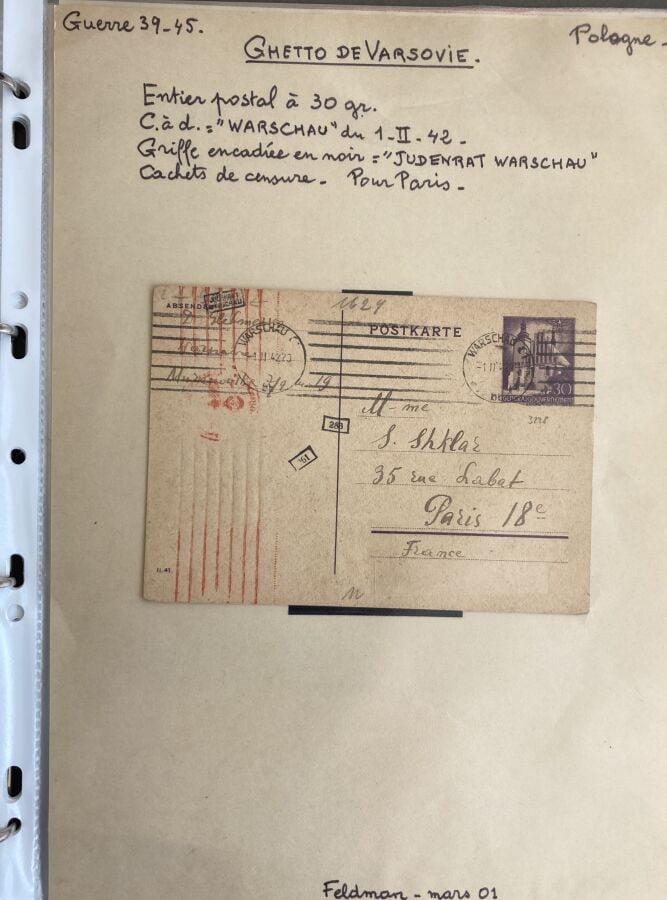 Guerre 39-45.
Pologne-
GHETTO DE VARSOVIE.
Entier postal à 30 gr.
C. à d. = "WARSCHAU" du 1-II-42-
Griffe encadrée en noir = "JUDENRAT WARSCHAU"
Cachets de censure- Pour Paris-
1629
ABSENDER
JUDENRAT WARSCHAU
POSTKARTE
WARSCHAU C
WARSCHAU C
30
3/9 m 19
M-me
S. Shklar
35 rue Labat
Paris 18e
France
288
161
3228
II. 41.
Feldman - mars 01